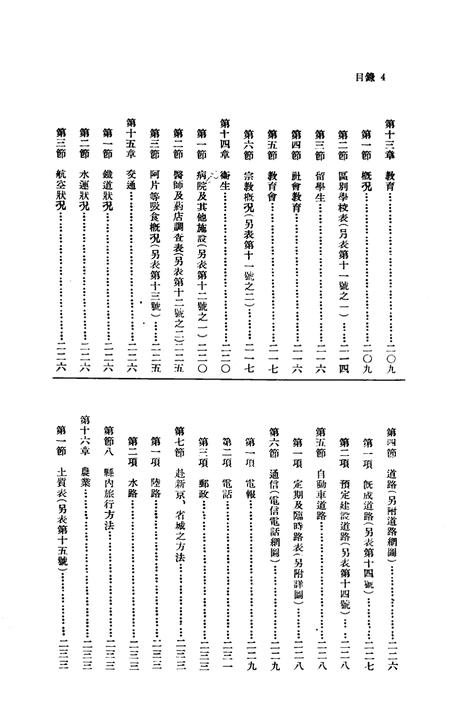 目錄 4
第十三章 教育……二〇九
第一節 概況……二〇九
第二節 區別學校表(另表第十一號之一)……二一四
第三節 留學生……二一六
第四節 社會教育……二一六
第五節 教育會……二一七
第六節 宗教概況(另表第十一號之二)……二一七
第十四章 衞生……二二〇
第一節 病院及其他施設(另表第十二號之一)二二〇
第二節 醫師及葯店調查表(另表第十二號之二)二二五
第三節 阿片等吸食概況(另表第十三號)……二二五
第十五章 交通……二二六
第一節 鐵道狀況……二二六
第二節 水運狀況……二二六
第三節 航空狀況……二二六
第四節 道路(另附道路網圖)……二二六
第一項 既成道路(另表第十四號)……二二七
第二項 預定建設道路(另表第十四號)……二二八
第五節 自動車道路……二二八
第一項 定期及臨時路表(另附詳圖)……二二八
第六節 通信(電信電話網圖)……二二九
第一項 電報……二二九
第二項 電話……二三一
第三項 郵政……二三三
第七節 赴新京、省城之方法……二三三
第一項 陸路……二三三
第二項 水路……二三三
第節八 縣內旅行方法……二三三
第十六章 農業……二三三
第一節 土質表(另表第十五號)……二三三